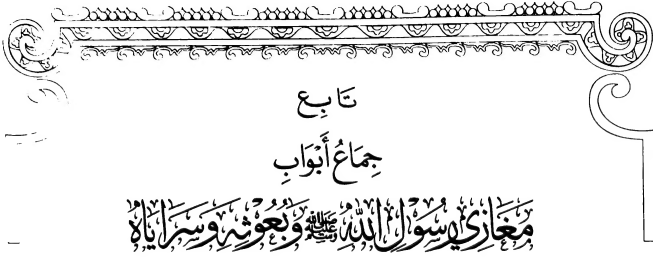 تَابِع
جِمَاعُ أَبْوَابِ
مَغَازِي رَسُوْلِ اللهِ ﷺ وَبُعُوْثِهِ وَسَرَايَاهُ